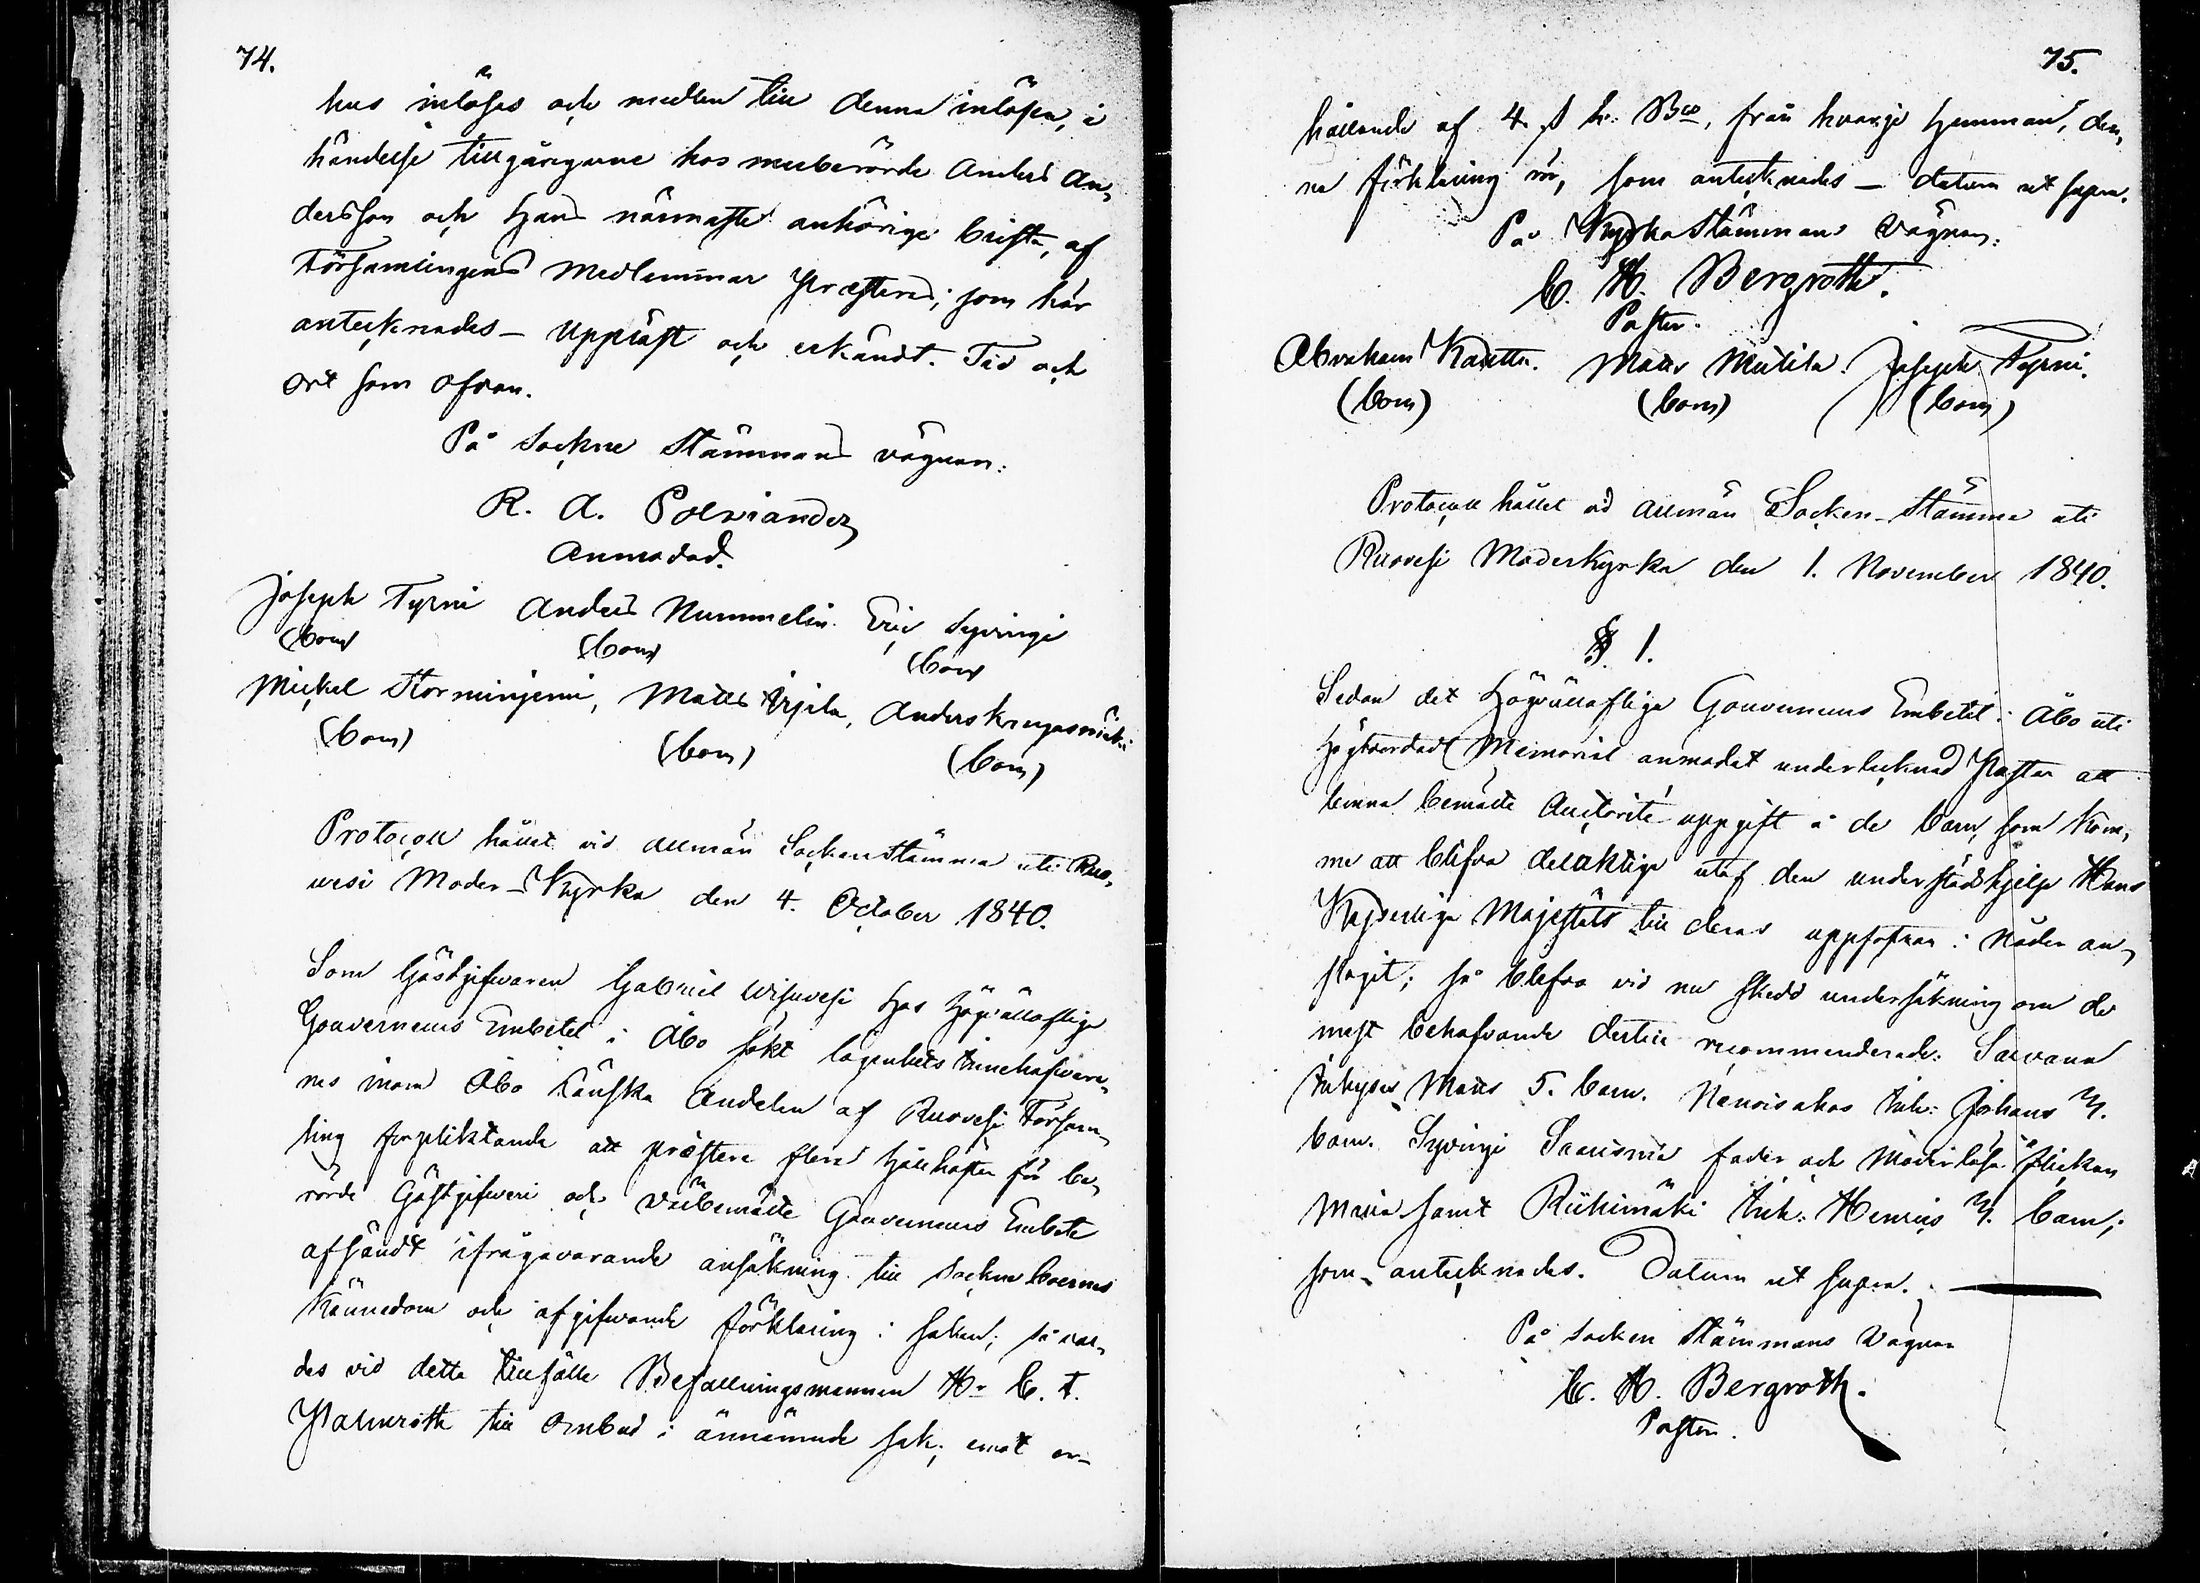 74.
hus inlöses och medlen till denna inlösen, i
händelse tillgångarne hos merberörde Anders An,
dersson och Hans närmaste anhörige brista, af
Församlingens Medlemmar præsteras; som här
antecknades – Uppläst och erkändt. Tid och
ort som ofvan.
På Sockne Stämmans vägnar:
R. A. Polviander
Anmodad.
Joseph Tyrni Anders Nummelin Eric Syvinge
(bom) (bom) (bom)
Mickel Storminjemi, MattsÄrjila, Anders
(bom) (bom) (bom)
Protocoll hållet vid allmän Sockenstämma uti Ruo,
wesi Moder-Kyrka den 4. October 1840.
Som Gästgifwaren Gabriel Wisuvesi hos Högvällofliga
Gouverneurs Embetet i Åbo sökt lägenhets innehafware,
nes inom Åbo Länska Andelen af Ruovesi Försam,
ling förpliktande att præstera flera Hållhästar för be,
rörde Gästgifweri och Välbemälte Gouverneurs Embete
afsändt ifrågavarande ansökning till Sockneboernes
Kännedom och afgifwande förklaring i saken; så val,
des vid detta tillfälle Befallningsmannen Hr C. F.
Palmroth till Ombud i ännämnde sak, emot er-
75.
hållande af 4. s h. Bco, från hvarje Hemman, den,
na förklaring som antecknades – datum ut supra.
På Kyrko Stämmans vägnar:
C. H. Bergroth.
Pastor.
Abraham Kautta. Matts Mutila. Joseph Tyrni.
(bom) (bom) (bom)
Protocoll hållet vid allmän Socken-Stämma uti
Ruovesi Moderkyrka den 1. November 1840.
§. 1.
Sedan det Högvällofliga Gouverneurs Embetet i Åbo uti
Högtvördad Memorial anmodat undertecknad Pastor att
lemna bemälte Auctorité uppgift å de barn, som kom,
me att blifva delaktige utaf den understödshjelp Hans
Kejserliga Majestäts till deras uppfostran i Nåder an,
slagit; så blefvo vid nu skedd undersökning om de
mest behöfvande dertill recommenderade: Sarvana
Inhyses Matts 5. barn. Inh: Johans 3.
barn. Syvinge fader och Moderlösa flickan
Maria samt Riihimäki Inh: Henrics 3. barn;
som antecknades. Datum ut supra.
På Socken Stämmans Vägnar
C. H. Bergroth.
Pastor.